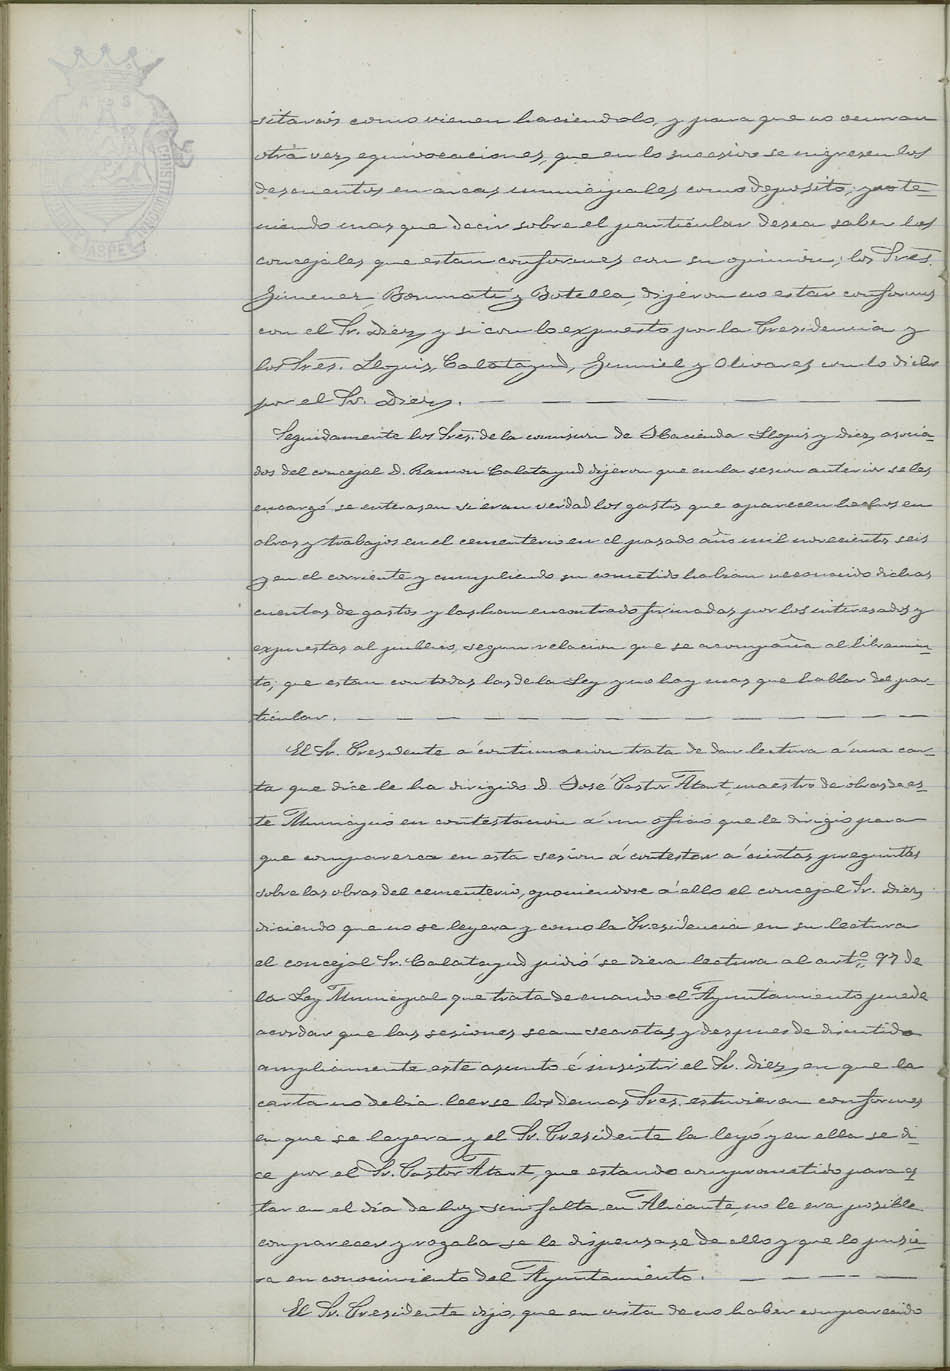 sitarios como vienen haciendolo, y para que no ocurran
otra vez, equivocaciones, que en lo sucesivo se ingresen los
descuentos en arcas municipales como deposito, y no te-
niendo mas que decir sobre el particular desea saber los
concejales que estan conformes con su opinion; los Sres.
Gimenez, Bonmatí y Botella, dijeron no estar conformes
con el Sr. Diez, y si con lo expuesto por la Presidencia y
los Sres. Seguis, Calatayud, Gumiel y Olivares con lo dicho
por el Sr. Diez.
Seguidamente los Sres. de la comision de Hacienda Seguis y Diez, asocia-
dos del concejal D. Ramon Calatayud dijeron que en la sesion anterior se les
encargó se enterasen si eran verdad los gastos que aparecen hechos en
obras y trabajos en el cementerio en el pasado año mil novecientos seis
y en el corriente y cumpliendo su cometido habian reconocido dichas
cuentas de gastos y las han encontrado firmadas por los interesados y
expuestas al publico, segun relacion que se acompaña al libramien-
to, que estan con todas las de la Ley y no hay mas que hablar del par-
ticular.
El Sr. Presidente á continuacion trata de dar lectura á una car-
ta que dice le ha dirigido D. José Pastor Atart, maestro de obras de es-
te Municipio en contestacion á un oficio que le dirigió para
que comparezca en esta sesion á contestar á ciertas preguntas
sobre las obras del cementerio, oponiendose á ello el concejal Sr. Diez,
diciendo que no se leyera y como la Presidencia en su lectura
el concejal Sr. Calatayud pidió se diera lectura al artº 97 de
la Ley Municipal que trata de cuando el Ayuntamiento puede
acordar que las sesiones sean secretas, y despues de discutido
ampliamente este asunto é insistir el Sr. Diez, en que la
carta no debia leerse los demas Sres. estuvieron conformes
en que se leyera y el Sr. Presidente la leyó y en ella se di-
ce por el Sr. Pastor Atart, que estando comprometido para es-
tar en el dia de hoy sin falta en Alicante, no le era posible
comparecer y rogaba se le dispensase de ello y que lo pusie-
ra en conocimiento del Ayuntamiento.
El Sr. Presidente dijo, que en vista de no haber comparecido
ASPE